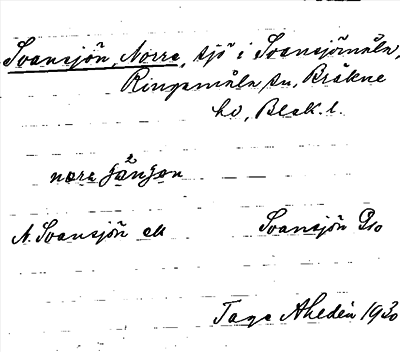 Svansjön, Norra, sjö i Svansjömåla,
Ringamåla sn, Bräkne
hd, Blek. l.
nora sjön
N. Svansjön ek Svansjön Gso
Tage Ahldén 1930